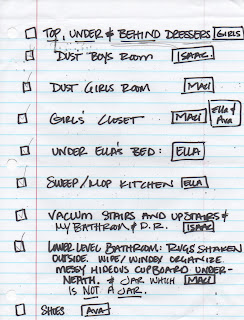 TOP, UNDER & BEHIND DRESSERS GIRLS
DUST BOYS ROOM ISAAC
DUST GIRLS ROOM MALI
GIRL'S CLOSET MALI Ella & Ava
UNDER ELLA'S BED: ELLA
SWEEP/MOP KITCHEN ELLA
VACUUM STAIRS AND UPSTAIRS &
MY BATHROOM & D.R. ISAAC
LOWER LEVEL BATHROOM: RUGS SHAKEN
OUTSIDE. WIPE/WINDEX ORGANIZE
MESSY HIDEOUS CUPBOARD UNDER-
NEATH. & JAR WHICH MALI
IS NOT A JAR.
SHOES AVA